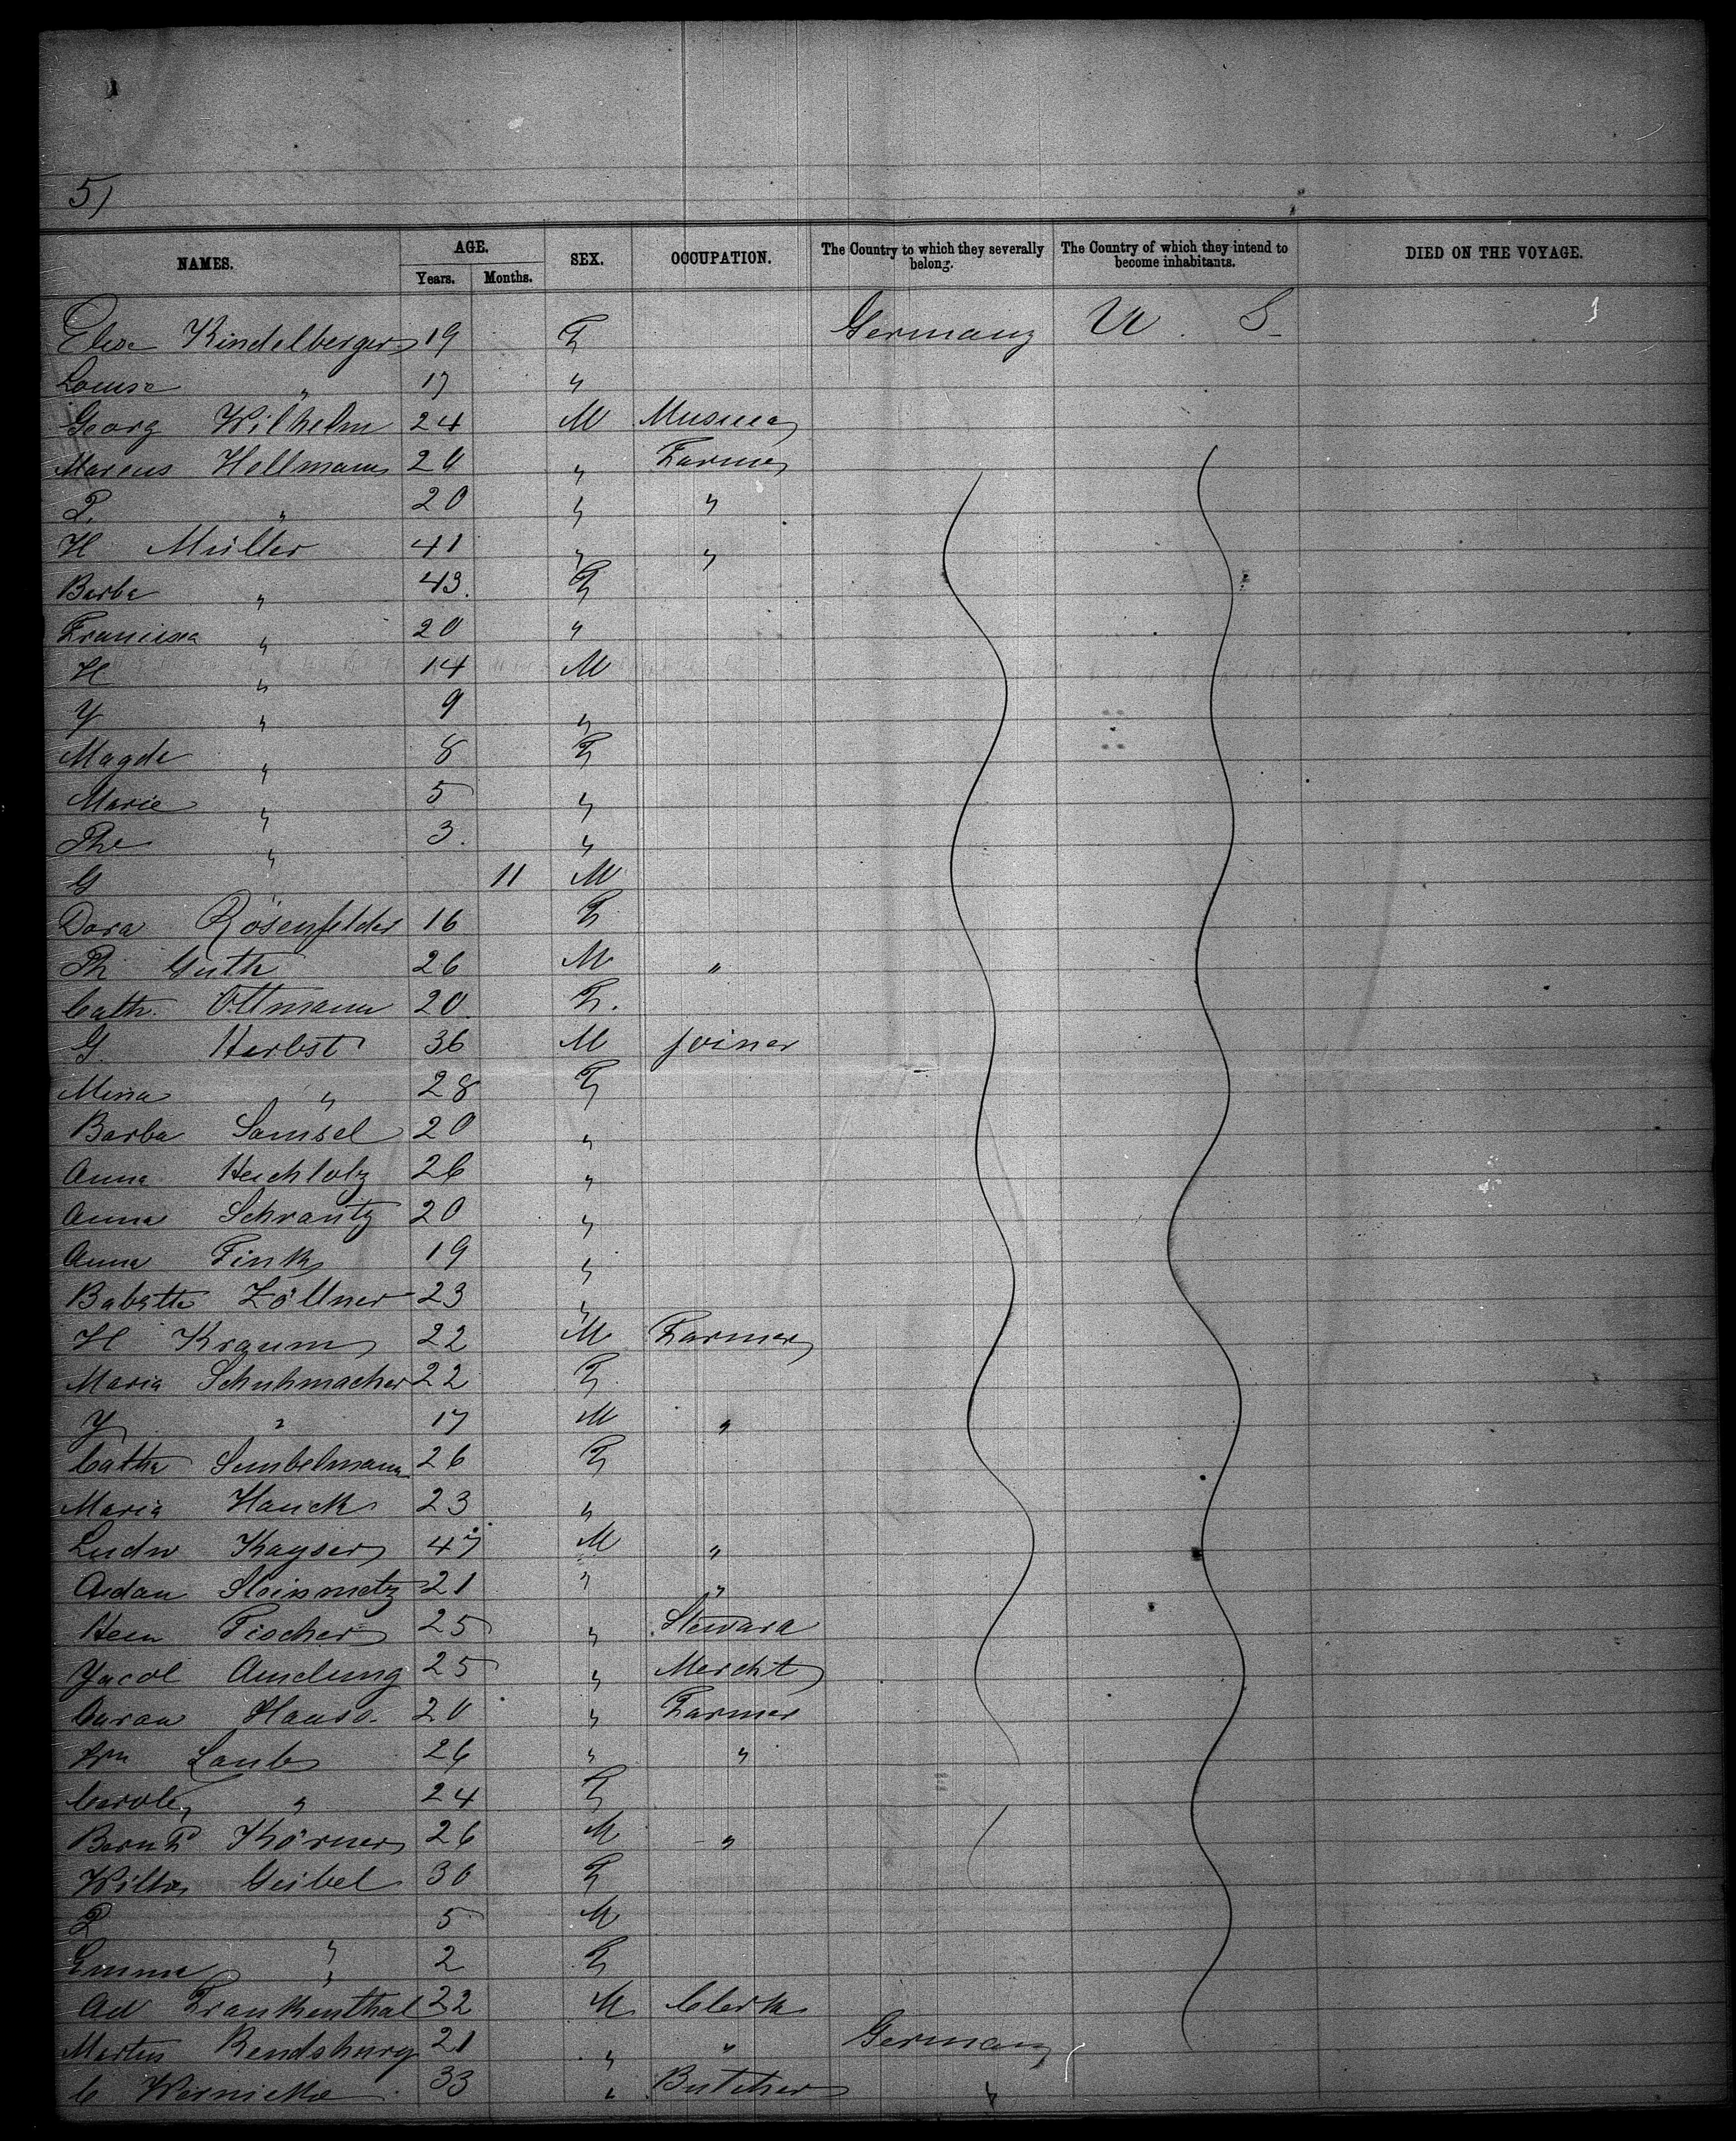 5)
NAMES. AGE. Years. Months. SEX. OCCUPATION. The Country to which they severally belong. The Country of which they intend to become inhabitants. DIED ON THE VOYAGE.
Elise Kindelberger 19 F Germany U. S.
Louise " 17 "
Georg Wilhelm 24 M
Marcus Hellmann 20 " Farmer
P. " 20 " "
H Müller 41 " "
Barba " 43. F
Francisca " 20 "
H " 14 M
Y " 9 "
Magde " 8 F
Marie " 5 "
Phe " 3. "
G 11 M
Dora Rosenfelder 16 F
Ph Guth 26 M "
Cath. Ottmann 20. F.
G. Herbst 36 M joiner
Mina " 28 F
Barba Samsel 20 "
Anna 26 "
Anna Schrantz 20 "
Anna Fink 19 "
Babette Zöllner 23 "
H Kraum 22 M Farmer
Maria Schuhmacher 22 F.
Y " 17 M "
Catha 26 F
Maria Hauck 23 "
Ludw Kayser 47 M "
Adam Steinmetz 21 " "
Fischer 25 " Steward
Jacob Amelung 25 " Mercht
20 " Farmer
Wm Laub 26 " "
Carole " 24 F
Bernhd Körner 26 M "
Wilhe Geibel 30 F
P " 5 M
Emma " 2 F
Ad Frankenthal 22 M Clerk
Martin Rendsburg 21 " " Germany
C Wernicke 33 " Butcher "